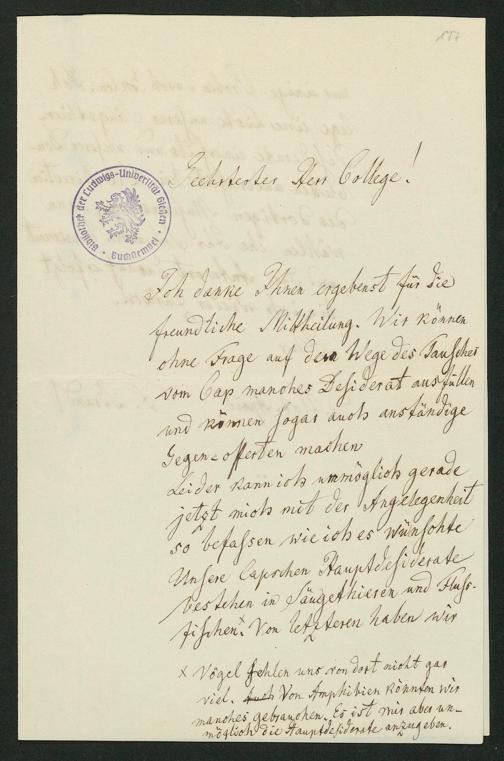 157
Geehrtester Herr College!
Bibliothek der Ludwigs-Universität Gießen · Buchstempel ·
Ich danke Ihnen ergebenst für die
freundliche Mittheilung. Wir können
ohne Frage auf dem Wege des Tausches
vom Cap manches Desiderat ausfüllen
und können sogar auch anständige
Gegen-offerten machen
Leider kann ich unmöglich gerade
jetzt mich mit der Angelegenheit
so befassen wie ich es wünschte
Unsere Capschen Hauptdesiderate
bestehen in Säugethieren und Fluss-
fischen.x Von letzteren haben wir
x Vögel fehlen uns von dort nicht gar
viel. Auch Von Amphibien könnten wir
manches gebrauchen. Es ist mir aber un-
möglich die Hauptdesiderate anzugeben.